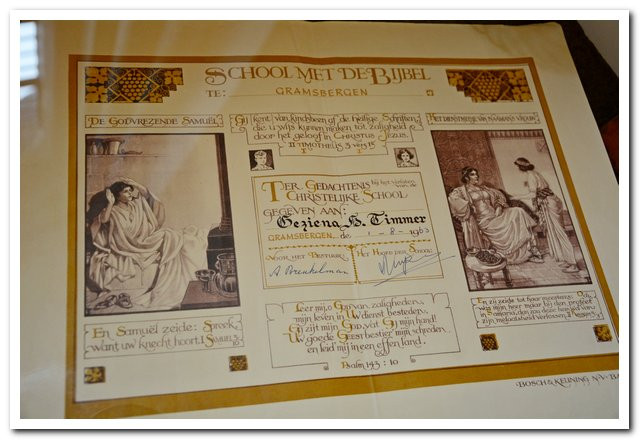 SCHOOL MET DE BIJBEL
TE: GRAMSBERGEN
DE GODVREZENDE SAMUËL
Gij kent van kindsbeen af de Heilige Schriften
die u wijs kunnen maken tot zaligheid
door het geloof in CHRISTUS JEZUS.
II TIMOTHEUS 3 VERS 15
HET DIENSTMEISJE VAN NAÄMANS VROUW
TER GEDACHTENIS bij het verlaten van de
CHRISTELIJKE SCHOOL
GEGEVEN AAN:
Geziena H. Timmer
GRAMSBERGEN, de 1-8-1963
VOOR HET BESTUUR:
HET HOOFD DER SCHOOL:
A Breukelman
En SAMUËL zeide: Spreek,
want uw knecht hoort. I SAMUEL 3
Leer mij, O GOD van zaligheden,
mijn leven in UW dienst besteden.
GIJ zijt mijn GOD, vat GIJ mijn hand!
UW goede GEEST bestier mijn schreden
en leid mij in een effen land.
Psalm 143 : 10
En zij zeide tot haar meesteres: Och,
was mijn heer maar bij den profeet
in Samaria, dan zou deze hem wel van
zijn melaatsheid verlossen.
BOSCH & KEUNING N.V.-BA